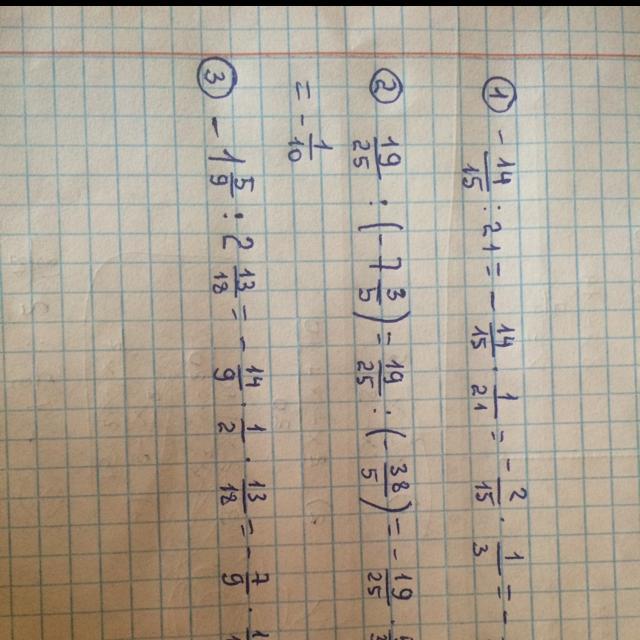 ① - 14/15 : 21 = - 14/15 · 1/21 = - 2/15 · 1/3 = -
② 19/25 : (-7 3/5) = 19/25 · (- 38/5) = - 19/25 ·
= - 1/10
③ - 1 5/9 : 2 13/18 = - 14/9 · 1/2 · 13/18 = - 7/9 ·